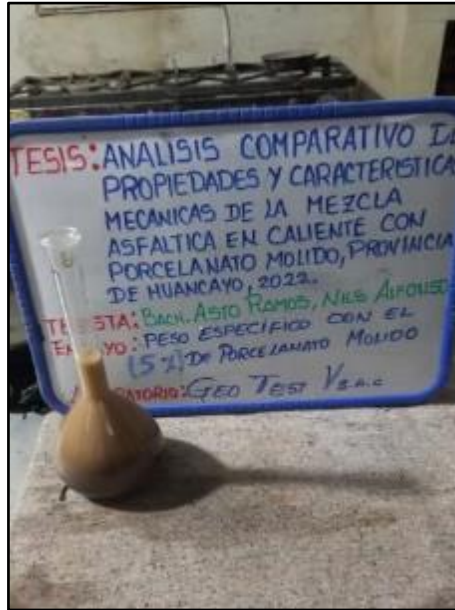 TESIS: ANALISIS COMPARATIVO DE
PROPIEDADES Y CARACTERISTICAS
MECANICAS DE LA MEZCLA
ASFALTICA EN CALIENTE CON
PORCELANATO MOLIDO, PROVINCIA
DE HUANCAYO, 2022.
TESISTA: BACH. ASTO RAMOS, NILS ALFONSO
ENSAYO: PESO ESPECIFICO CON EL
(5%) DE PORCELANATO MOLIDO
LABORATORIO: GEO TEST V S.A.C